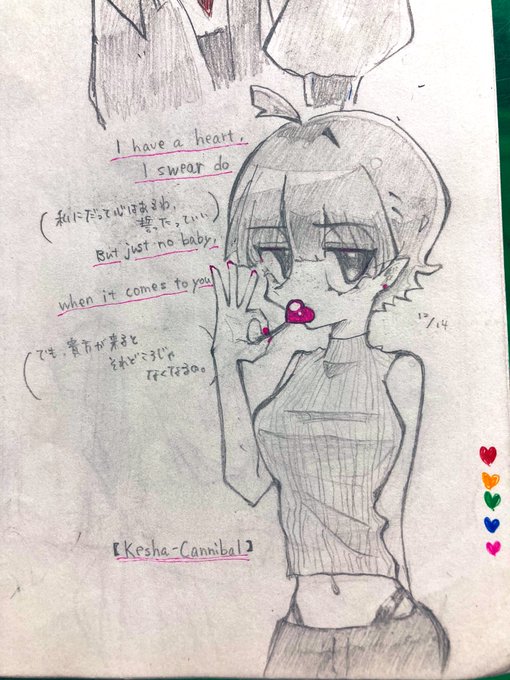 I have a heart,
I swear do
(私にだって心はあるわ、
誓だっていい)
But just no baby,
when it comes to you
(でも、貴方が来ると
それどころじゃ
なくなるの。
12/14
【Kesha-Cannibal】